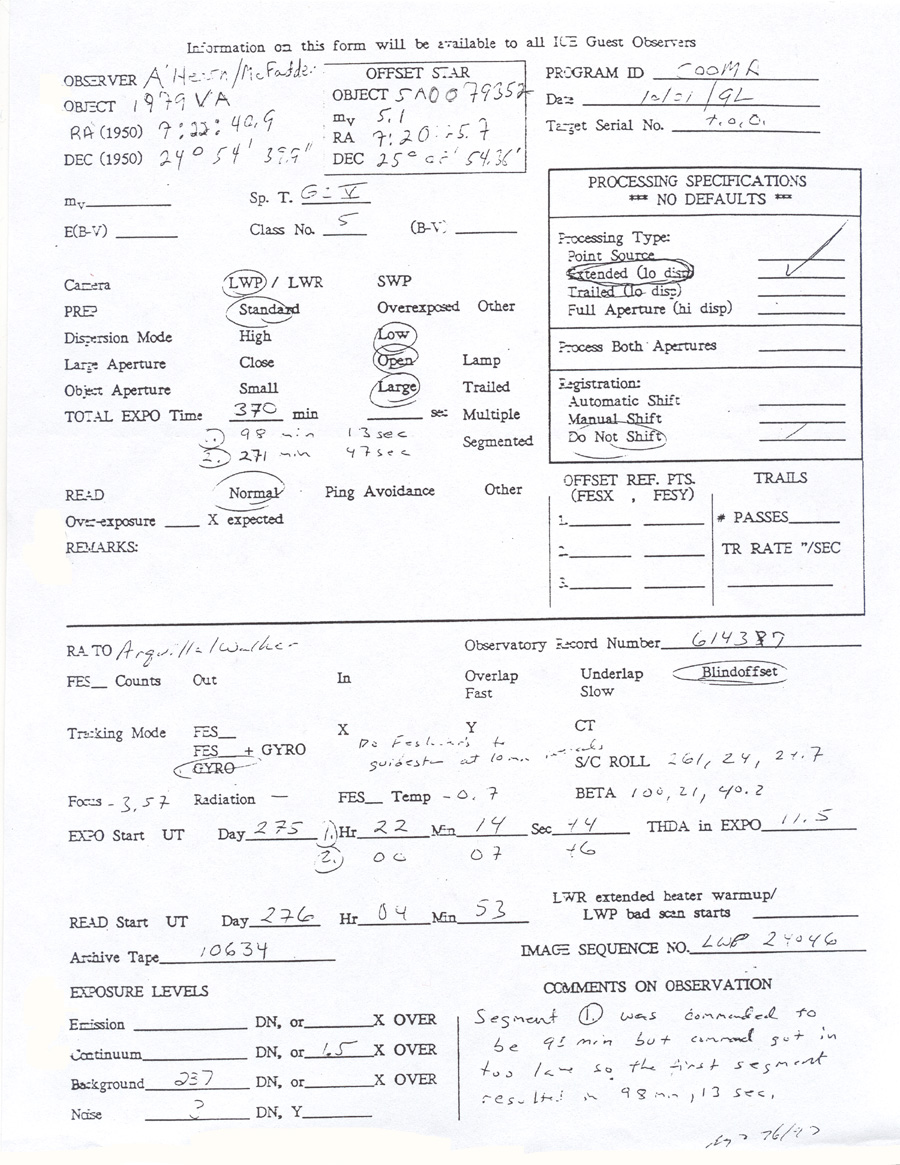 Information on this form will be available to all IUE Guest Observers
OBSERVER A'Hearn/McFadden
OBJECT 1979 VA
RA (1950) 7:22:40.9
DEC (1950) 24° 54' 39.9"
OFFSET STAR
OBJECT SAO079352
mv 5.1
RA 7:20: 5.7
DEC 25° 54.36"
PROGRAM ID
Date
Target Serial No. T.O.O.
mv
Sp. T. G V
E(B-V)
Class No. 5
(B-V)
PROCESSING SPECIFICATIONS
*** NO DEFAULTS ***
Processing Type:
Point Source
Extended (lo disp) ✓
Trailed (lo disp)
Full Aperture (hi disp)
Process Both Apertures
Registration:
Automatic Shift
Manual Shift
Do Not Shift
Camera LWP / LWR SWP
PREP Standard Overexposed Other
Dispersion Mode High Low
Large Aperture Close Open Lamp
Object Aperture Small Large Trailed
TOTAL EXPO Time 370 min sec Multiple
1. 98 min 13 sec
Segmented
2. 271 min 47 sec
READ Normal Ping Avoidance Other
Over-exposure X expected
REMARKS:
OFFSET REF. PTS.
(FESX , FESY)
1.
2.
3.
TRAILS
# PASSES
TR RATE "/SEC
RA TO /Walker
Observatory Record Number
FES Counts Out In Overlap Underlap Blindoffset
Fast Slow
Tracking Mode FES X Y CT
FES + GYRO
GYRO
Do to
guidestar at 10 min intervals
S/C ROLL 261, 24, 24.7
Focus -3.57 Radiation — FES Temp -0.7 BETA 100, 21, 40.2
EXPO Start UT Day 275 1. Hr 22 Min 14 Sec 14 THDA in EXPO 11.5
2. 00 07 46
READ Start UT Day 276 Hr 04 Min 53
LWR extended heater warmup/
LWP bad scan starts
Archive Tape 10634
IMAGE SEQUENCE NO. LWP 24046
EXPOSURE LEVELS
Emission DN, or X OVER
Continuum DN, or 1.5 X OVER
Background 237 DN, or X OVER
Noise ? DN, Y
COMMENTS ON OBSERVATION
Segment 1. was commanded to
be min but command got in
too late so the first segment
resulted in 98 min, 13 sec.